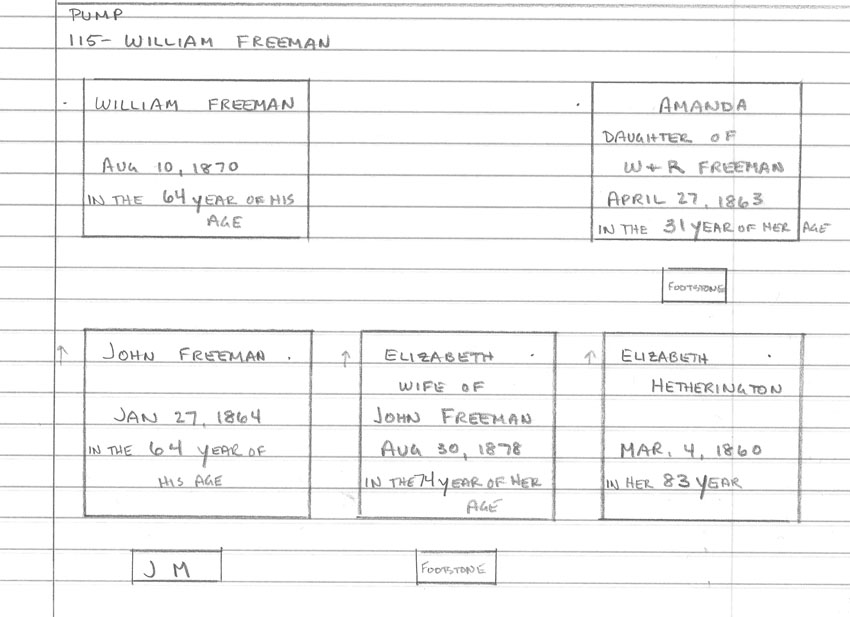 PUMP
115- WILLIAM FREEMAN
WILLIAM FREEMAN
AUG 10, 1870
IN THE 64 YEAR OF HIS
AGE
AMANDA
DAUGHTER OF
W + R FREEMAN
APRIL 27, 1863
IN THE 31 YEAR OF HER AGE
FOOTSTONE
JOHN FREEMAN .
JAN 27, 1864
IN THE 64 YEAR OF
HIS AGE
ELIZABETH .
WIFE OF
JOHN FREEMAN
AUG 30, 1878
IN THE 74 YEAR OF HER
AGE
ELIZABETH .
HETHERINGTON
MAR. 4, 1860
IN HER 83 YEAR
J M
FOOTSTONE